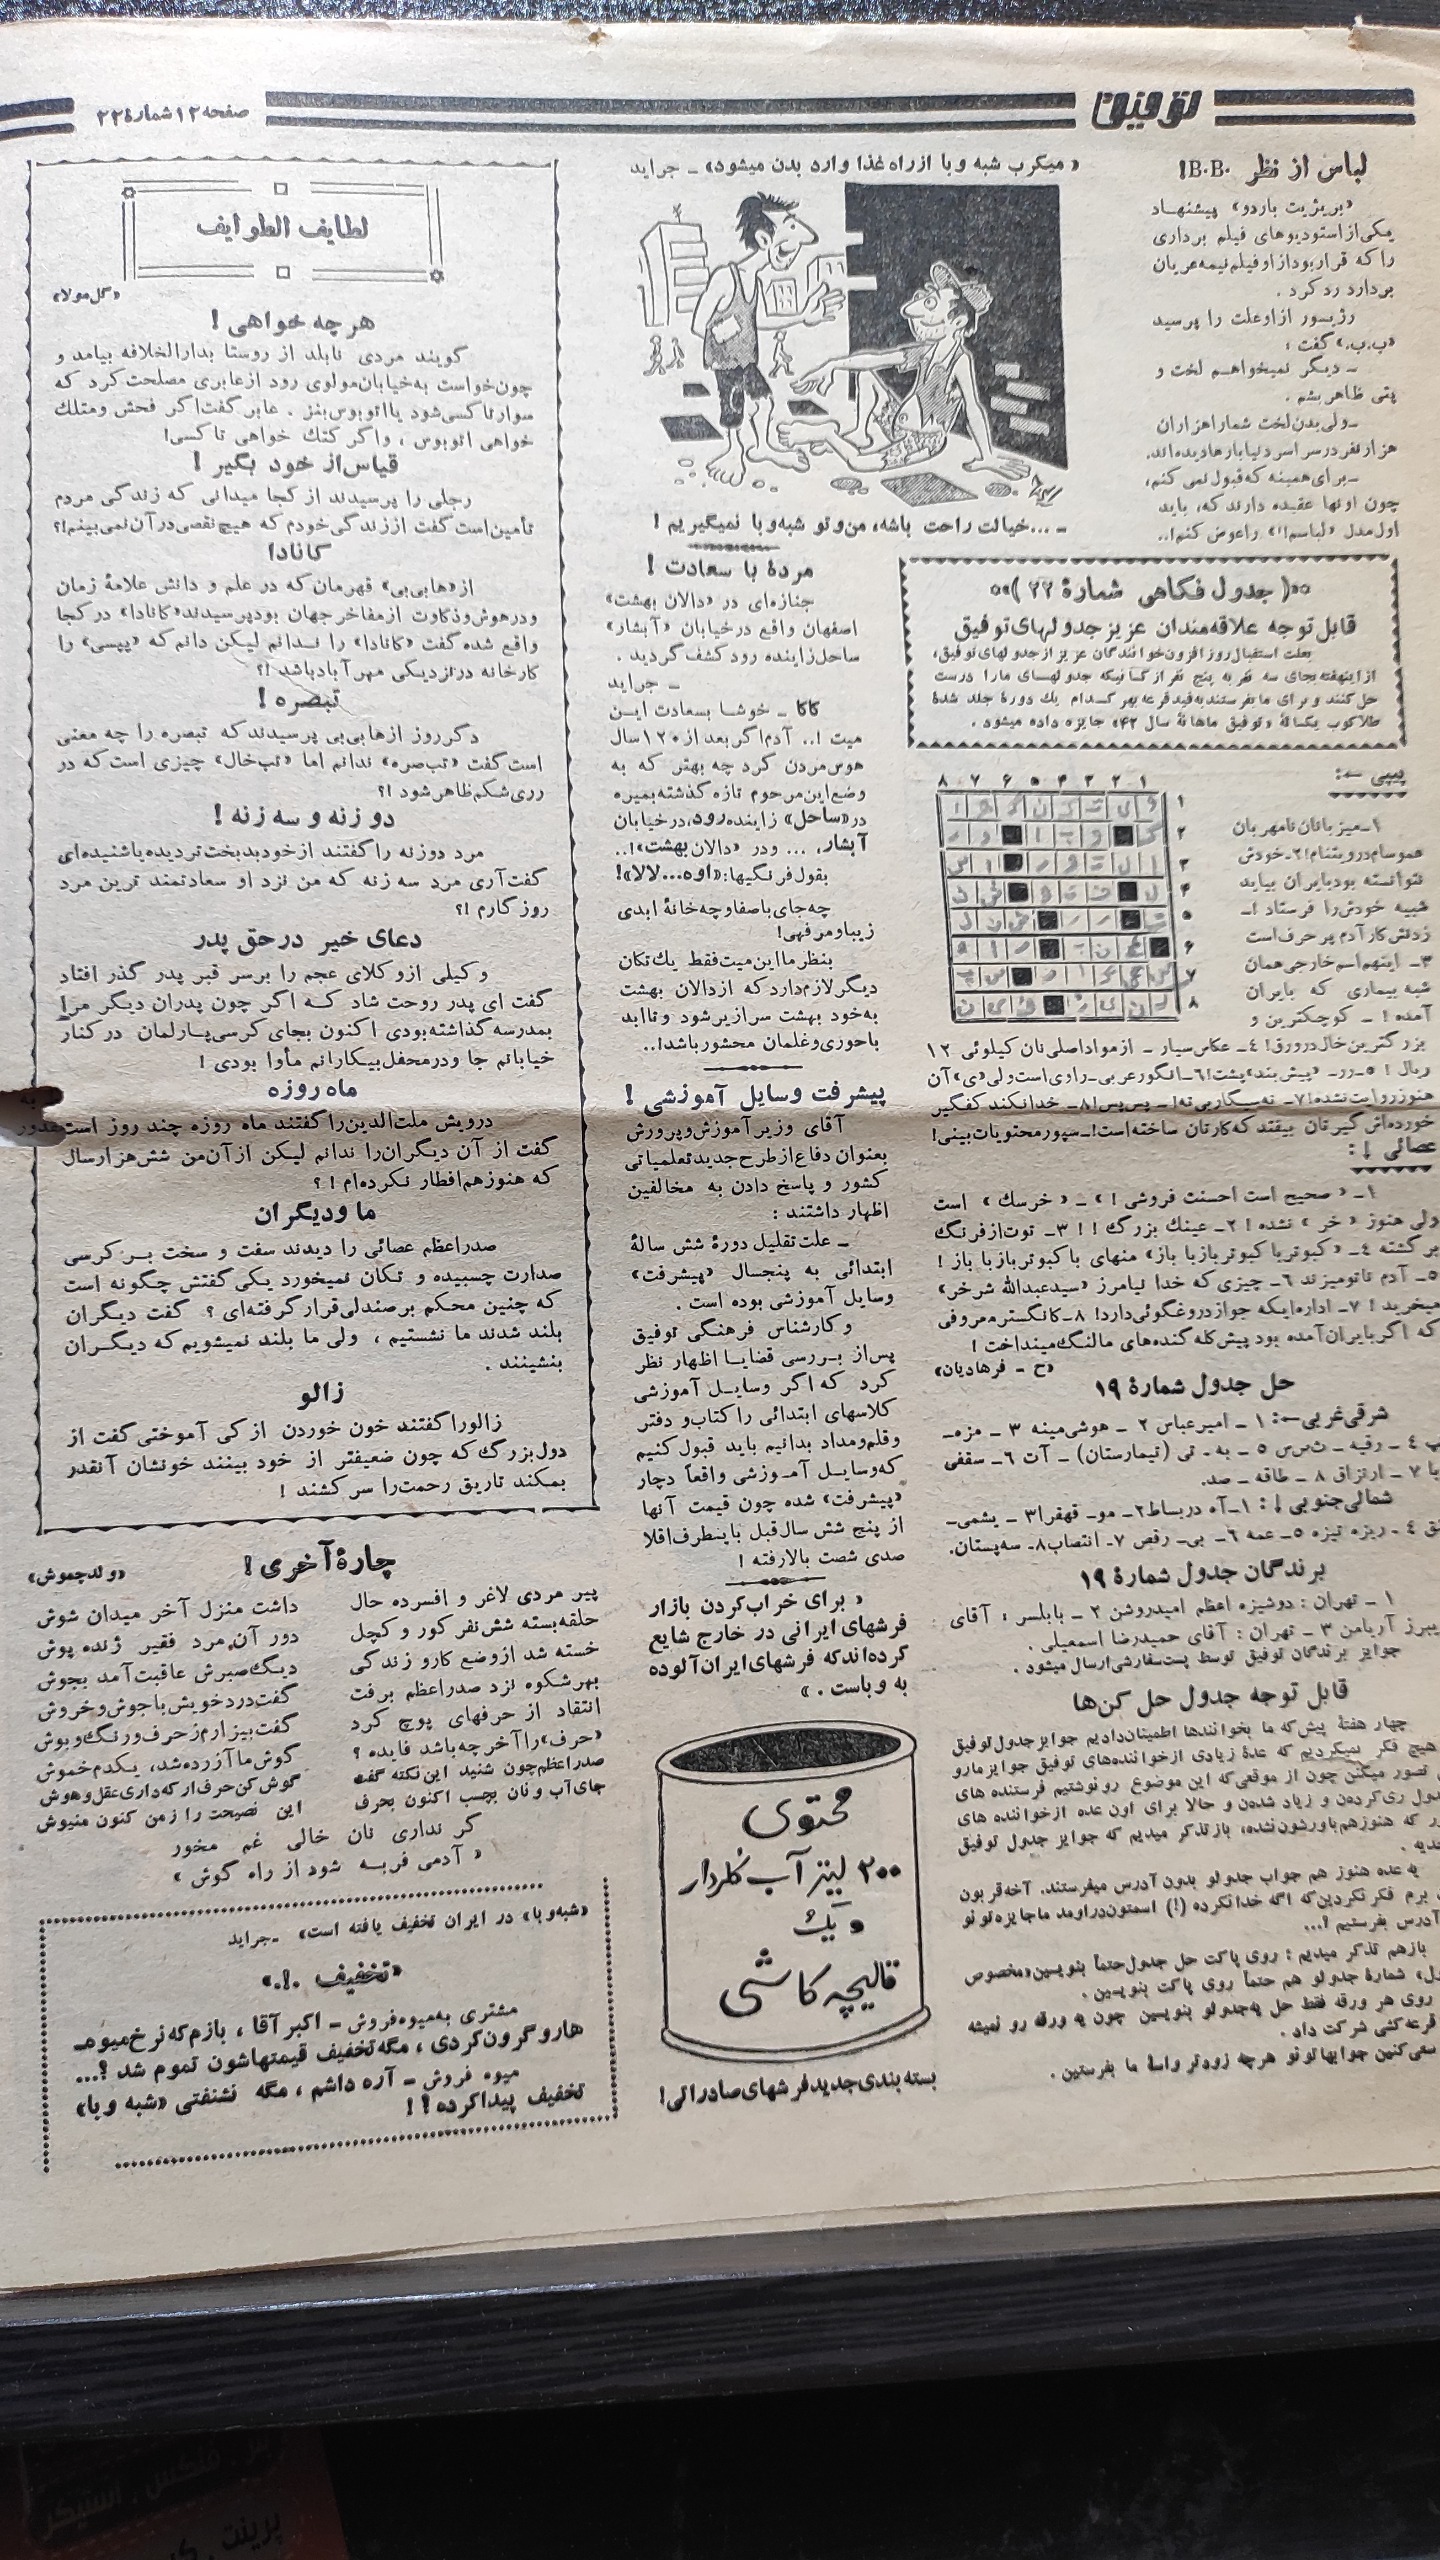 توفیق
صفحه ۱۲ شمارهٔ ۲۲
لباس از نظر B.B.!
«بریژیت باردو» پیشنهاد
یکی از استودیوهای فیلم برداری
را که قرار بود از او فیلم نیمه عریان
بردارد رد کرد.
رژیسور از او علت را پرسید
«ب.ب.» گفت:
ـ دیگر نمیخواهم لخت و
پتی ظاهر بشم.
ـ ولی بدن لخت شما را هزاران
هزار نفر در سراسر دنیا بارها دیده‌اند.
ـ برای همینه که قبول نمی کنم،
چون اونها عقیده دارند که، باید
اول مدل «لباسم!» را عوض کنم!..
«میکرب شبه وبا از راه غذا وارد بدن میشود» ـ جراید
ـ ...خیالت راحت باشه، من و تو شبه وبا نمیگیریم!
««( جدول فکاهی شمارهٔ ۲۲ )»»
قابل توجه علاقه‌مندان عزیز جدولهای توفیق
بعلت استقبال روز افزون خوانندگان عزیز از جدولهای توفیق،
از اینهفته بجای سه نفر به پنج نفر از کسانیکه جدولهای ما را درست
حل کنند و برای ما بفرستند بقید قرعه بهر کدام یك دورهٔ جلد شدهٔ
طلاکوب یکسالهٔ «توفیق ماهانهٔ سال ۴۲» جایزه داده میشود.
۱ ۲ ۳ ۴ ۵ ۶ ۷ ۸
۱
۲
۳
۴
۵
۶
۷
۸
پیپی ←:
۱ـ میزبانان نامهربان
عموسام در ویتنام! ۲ـ خودش
نتوانسته بود بایران بیاید
شبیه خودش را فرستاد! ـ
زدنش کار آدم پر حرف است
۳ـ اینهم اسم خارجی همان
شبه بیماری که بایران
آمده! ـ کوچکترین و
بزرگترین خال در ورق! ٤ـ عکاس سیار ـ از مواد اصلی نان کیلوئی ۱۲
ریال! ۵ـ رر ـ «پیش بند» پشت! ٦ـ انگور عربی ـ راوی است ولی «ی» آن
هنوز روایت نشده! ۷ـ ته سیگار بی ته! ـ پس پس! ۸ـ خدا نکند کفگیر
خورده‌اش گیرتان بیفتد که کارتان ساخته است! ـ سپور محتویات بینی!
عصائی ↓:
۱ـ «صحیح است احسنت فروشی!» ـ «خرسك» است
ولی هنوز «خر» نشده! ۲ـ عینك بزرگ!! ۳ـ توت از فرنگ
برگشته ٤ـ «کبوتر با کبوتر باز با باز» منهای با کبوتر باز با باز!
۵ـ آدم ناتومیزند ٦ـ چیزی که خدا نیامرز «سید عبدالله شرخر»
میخرید! ۷ـ اداره‌ایکه جواز دروغگوئی دارد! ۸ـ کانگستر معروفی
که اگر بایران آمده بود پیش کله گنده‌های ما لنگ مینداخت!
«ح ـ فرهادیان»
حل جدول شمارهٔ ۱۹
شرقی غربی ←: ۱ ـ امیرعباس ۲ ـ هوشی‌مینه ۳ ـ مزه ـ
پ ٤ ـ رقیه ـ ث‌س‌س ۵ ـ به ـ تی (تیمارستان) ـ آت ٦ـ سقفی
با ۷ ـ ارتزاق ۸ ـ طاقه ـ صد.
شمالی جنوبی ↓: ۱ـ آه در بساط ۲ـ مو ـ قهقرا ۳ ـ یشمی ـ
ق ٤ ـ ریزه تیزه ۵ـ عمه ٦ـ بی ـ رقص ۷ـ انتصاب ۸ـ سه‌پستان.
برندگان جدول شمارهٔ ۱۹
۱ ـ تهران: دوشیزه اعظم امیدروشن ۲ ـ بابلسر: آقای
یبرز آریامن ۳ ـ تهران: آقای حمیدرضا اسمعیلی.
جوایز برندگان توفیق توسط پست سفارشی ارسال میشود.
قابل توجه جدول حل کن‌ها
چهار هفتهٔ پیش که ما بخوانندها اطمینان دادیم جوایز جدول توفیق
هیچ فکر نمیکردیم که عدهٔ زیادی از خواننده‌های توفیق جوایز مارو
تصور میکنن چون از موقعی که این موضوع رو نوشتیم فرستنده های
دول ری کردن و زیاد شدن و حالا برای اون عده از خواننده های
ور که هنوز هم باورشون نشده، باز تذکر میدیم که جوایز جدول توفیق
جدیه.
یه عده هنوز هم جواب جدولو بدون آدرس میفرستند. آخه قربون
برم فکر نکردین که اگه خدا نکرده (!) اسمتون در اومد ما جایزه تونو
آدرس بفرستیم؟...
بازهم تذکر میدیم: روی پاکت حل جدول حتماً بنویسین «مخصوص
ول» شمارهٔ جدولو هم حتماً روی پاکت بنویسین.
روی هر ورقه فقط حل یه جدولو بنویسین چون یه ورقه رو نمیشه
قرعه کشی شرکت داد.
سعی کنین جوابهاتونو هرچه زودتر واسهٔ ما بفرستین.
مردهٔ با سعادت!
جنازه‌ای در «دالان بهشت»
اصفهان واقع در خیابان «آبشار»
ساحل زاینده رود کشف گردید.
ـ جراید
کاکا ـ خوشا بسعادت این
میت!.. آدم اگر بعد از ۱۲۰ سال
هوس مردن کرد چه بهتر که به
وضع این مرحوم تازه گذشته بمیره
در «ساحل» زاینده رود، در خیابان
آبشار، ... و در «دالان بهشت»!..
بقول فرنگیها: «اوه... لالا»!
چه جای باصفا و چه خانهٔ ابدی
زیبا و مرفهی!
بنظر ما این میت فقط یك تکان
دیگر لازم دارد که از دالان بهشت
به خود بهشت سرازیر شود و تا ابد
با حوری و غلمان محشور باشد!..
پیشرفت وسایل آموزشی!
آقای وزیر آموزش و پرورش
بعنوان دفاع از طرح جدید تعلمیاتی
کشور و پاسخ دادن به مخالفین
اظهار داشتند:
ـ علت تقلیل دورهٔ شش سالهٔ
ابتدائی به پنجسال «پیشرفت»
وسایل آموزشی بوده است.
و کارشناس فرهنگی توفیق
پس از بررسی قضایا اظهار نظر
کرد که اگر وسایل آموزشی
کلاسهای ابتدائی را کتاب و دفتر
و قلم و مداد بدانیم باید قبول کنیم
که وسایل آموزشی واقعاً دچار
«پیشرفت» شده چون قیمت آنها
از پنج شش سال قبل باینطرف اقلا
صدی شصت بالا رفته!
«برای خراب کردن بازار
فرشهای ایرانی در خارج شایع
کرده‌اند که فرشهای ایران آلوده
به وباست.»
محتوی
۲۰۰ لیتر آب کلردار
و یک
قالیچه کاشی
بسته بندی جدید فرشهای صادراتی!
لطایف الطوایف
«گل مولا»
هرچه خواهی!
گویند مردی نابلد از روستا بدارالخلافه بیامد و
چون خواست به خیابان مولوی رود از عابری مصلحت کرد که
سوار تاکسی شود یا اتوبوس بنز. عابر گفت اگر فحش و متلك
خواهی اتوبوس، و اگر کتك خواهی تاکسی!
قیاس از خود بگیر!
رجلی را پرسیدند از کجا میدانی که زندگی مردم
تأمین است گفت از زندگی خودم که هیچ نقصی در آن نمی‌بینم!؟
کانادا
از «هابی‌بی» قهرمان که در علم و دانش علامهٔ زمان
و در هوش و ذکاوت از مفاخر جهان بود پرسیدند «کانادا» در کجا
واقع شده گفت «کانادا» را ندانم لیکن دانم که «پپسی» را
کارخانه در نزدیکی مهرآباد باشد!؟
تبصره!
دگر روز از هابی‌بی پرسیدند که تبصره را چه معنی
است گفت «تب‌صره» ندانم اما «تب‌خال» چیزی است که در
رری شکم ظاهر شود!؟
دو زنه و سه زنه!
مرد دوزنه را گفتند از خود بدبخت تر دیده یا شنیده‌ای
گفت آری مرد سه زنه که من نزد او سعادتمند ترین مرد
روزگارم!؟
دعای خیر در حق پدر
وکیلی از وکلای عجم را بر سر قبر پدر گذر افتاد
گفت ای پدر روحت شاد که اگر چون پدران دیگر مرا
بمدرسه گذاشته بودی اکنون بجای کرسی پارلمان در کنار
خیابانم جا و در محفل بیکارانم مأوا بودی!
ماه روزه
درویش ملت‌الدین را گفتند ماه روزه چند روز است
گفت از آن دیگران را ندانم لیکن از آن من شش هزار سال
که هنوز هم افطار نکرده‌ام!؟
ما و دیگران
صدراعظم عصائی را دیدند سفت و سخت بر کرسی
صدارت چسبیده و تکان نمیخورد یکی گفتش چگونه است
که چنین محکم بر صندلی قرار گرفته‌ای؟ گفت دیگران
بلند شدند ما نشستیم، ولی ما بلند نمیشویم که دیگران
بنشینند.
زالو
زالو را گفتند خون خوردن از کی آموختی گفت از
دول بزرگ که چون ضعیفتر از خود بینند خونشان آنقدر
بمکند تاریق رحمت را سر کشند!
چارهٔ آخری!
«ولد چموش»
پیر مردی لاغر و افسرده حال
داشت منزل آخر میدان شوش
حلقه بسته شش نفر کور و کچل
دور آن مرد فقیر ژنده پوش
خسته شد از وضع کار و زندگی
دیگ صبرش عاقبت آمد بجوش
بهر شکوه نزد صدراعظم برفت
گفت درد خویش با جوش و خروش
انتقاد از حرفهای پوچ کرد
گفت بیزارم ز حرف و رنگ و بوش
«حرف» را آخر چه باشد فایده؟
گوش ما آزرده شد، یکدم خموش
صدراعظم چون شنید این نکته گفت
گوش کن حرف ار که داری عقل و هوش
جای آب و نان بچسب اکنون بحرف
این نصیحت را ز من کنون منیوش
گر نداری نان خالی غم مخور
«آدمی فربه شود از راه گوش»
«شبه وبا» در ایران تخفیف یافته است» ـ جراید
«تخفیف!..»
مشتری به میوه فروش ـ اکبر آقا، بازم که نرخ میوه‌ـ
هارو گرون کردی، مگه تخفیف قیمتهاشون تموم شد؟...
میوه فروش ـ آره داشم، مگه نشنفتی «شبه وبا»
تخفیف پیدا کرده؟!